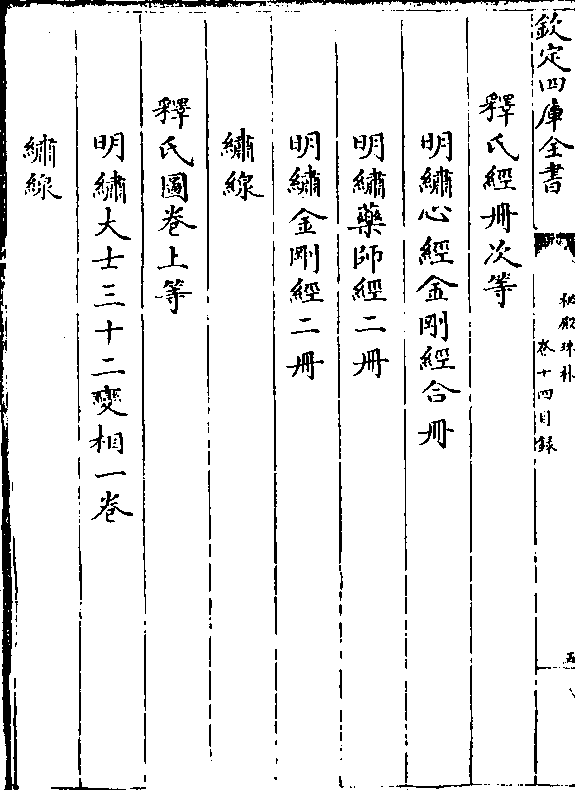 欽定四庫全書
秘殿珠林
卷十四目録
五
釋氏經冊次等
明繡心經金剛經合冊
明繡藥師經二冊
明繡金剛經二冊
繡線
釋氏圖卷上等
明繡大士三十二變相一卷
繡線